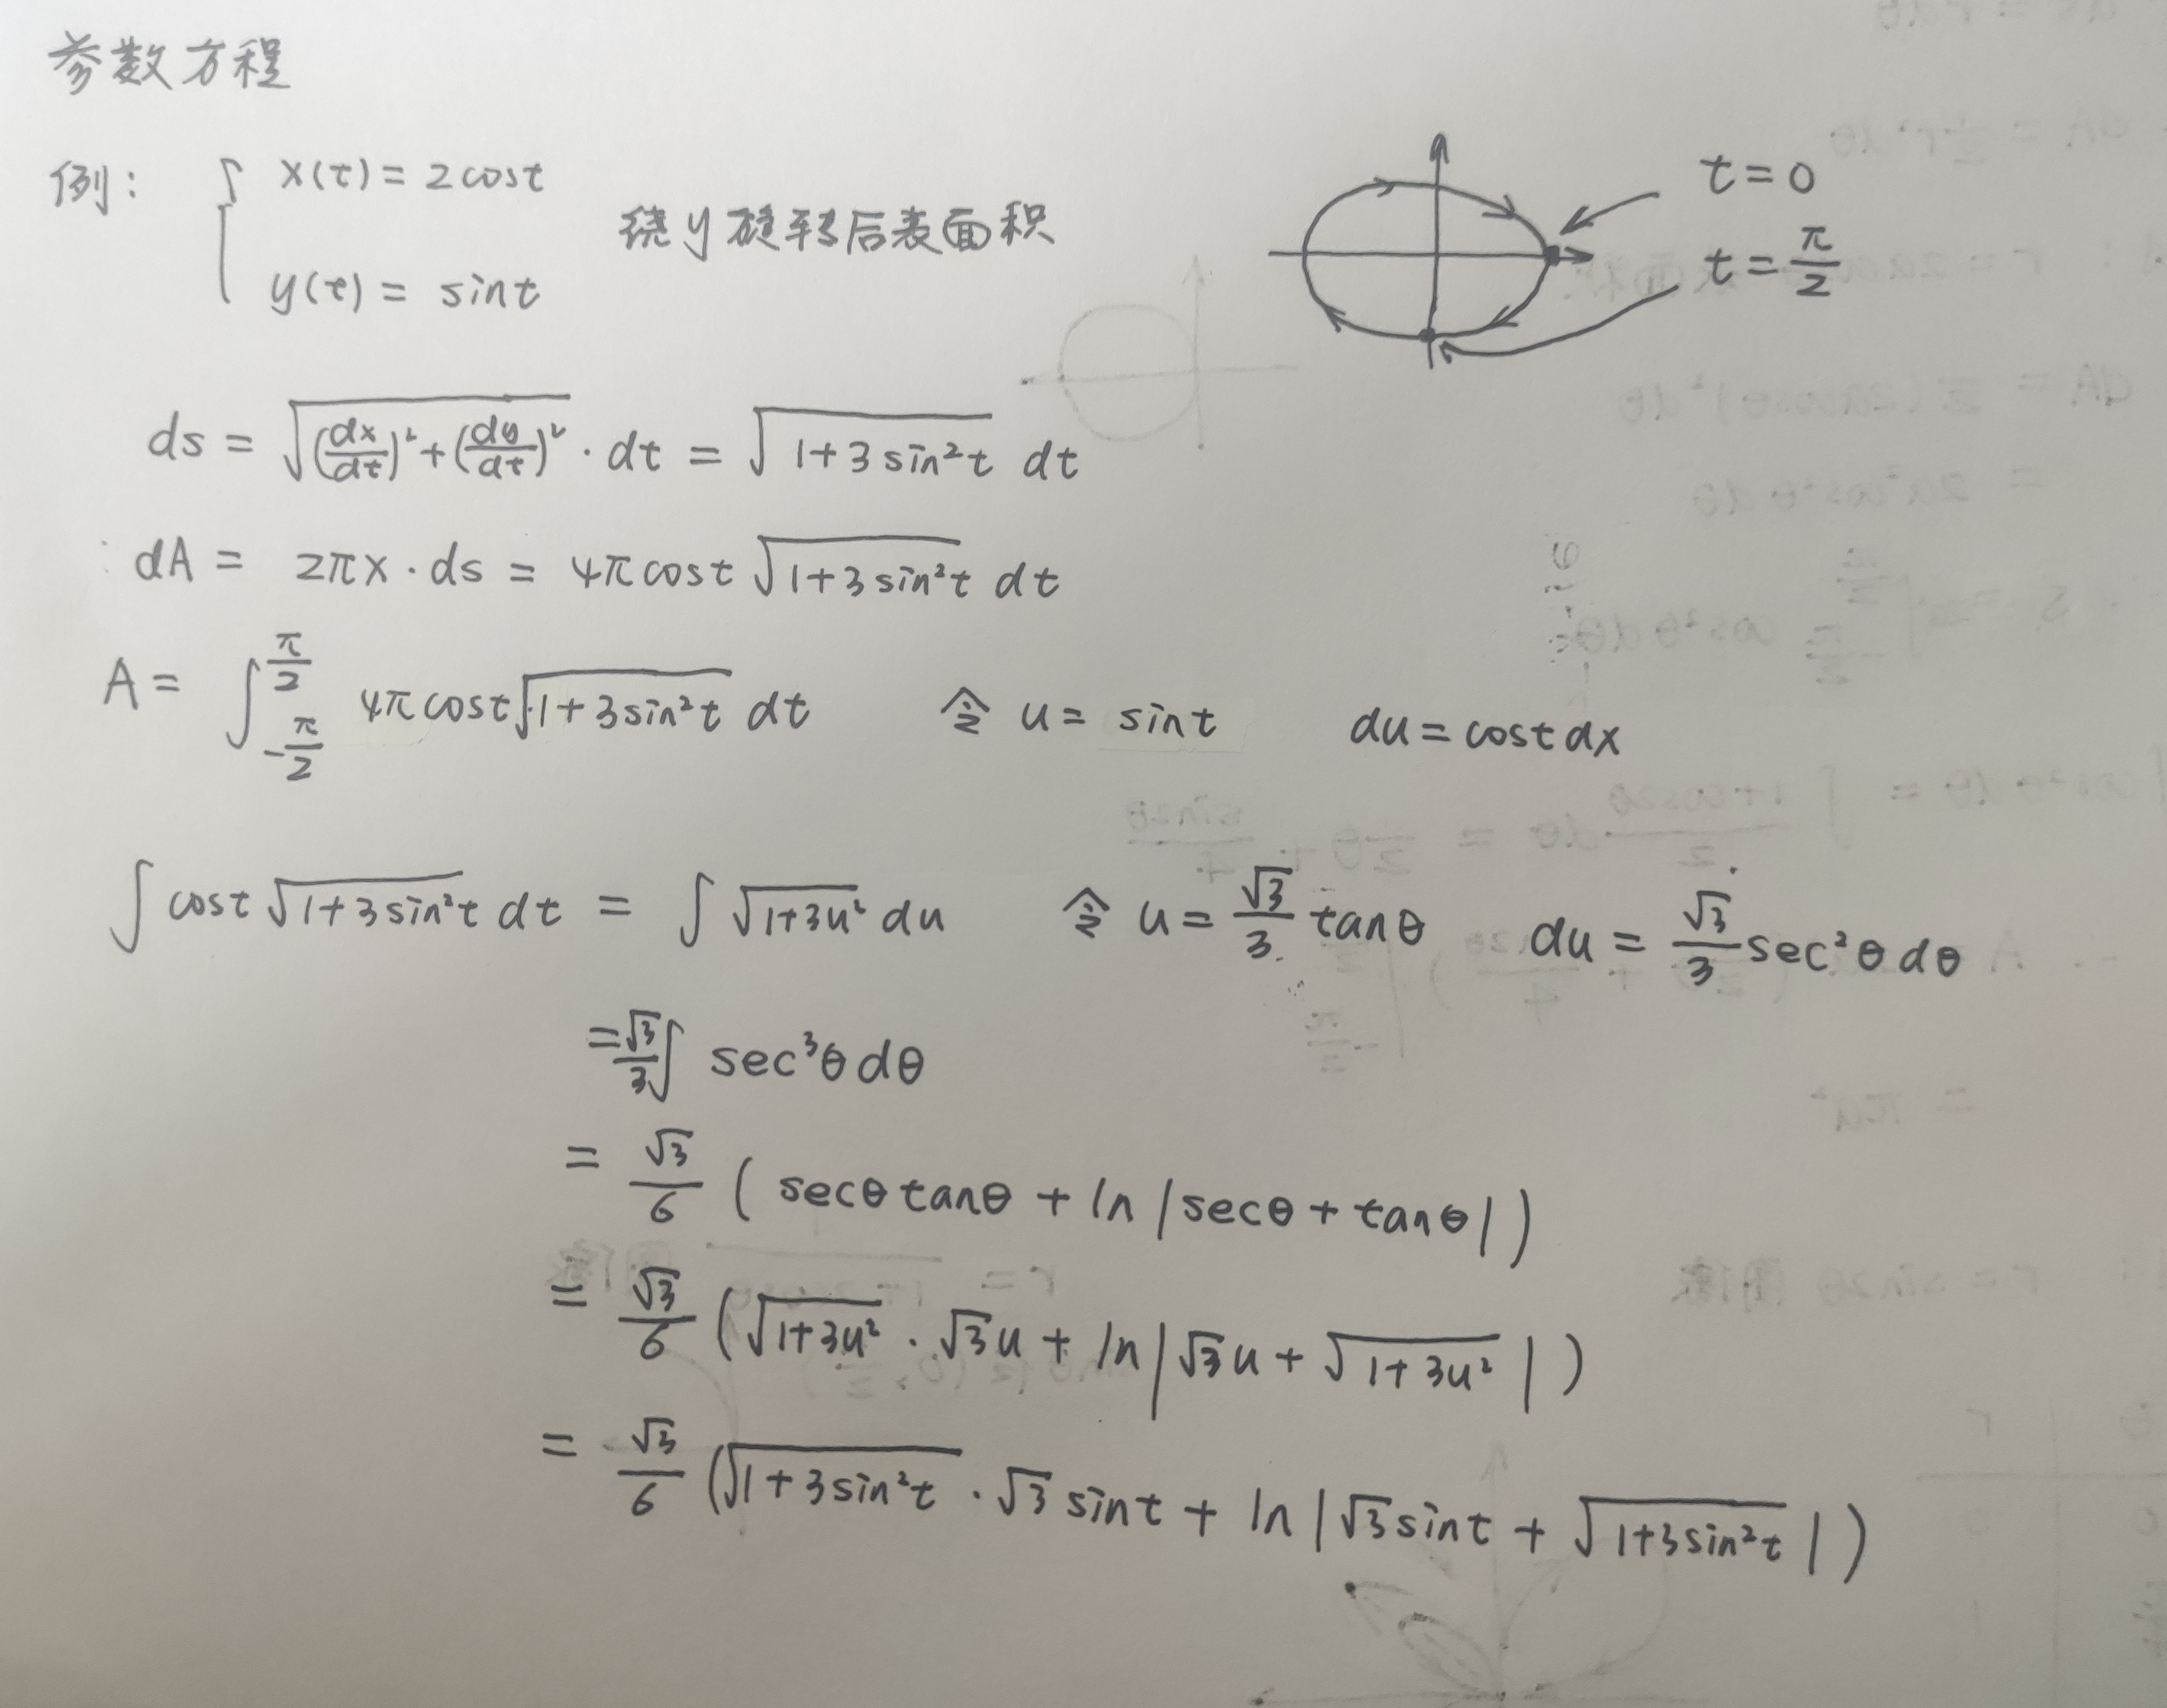 参数方程
例: { x(t) = 2cost
y(t) = sint
绕y旋转后表面积
t = 0
t = π/2
ds = √((dx/dt)² + (dy/dt)²) · dt = √(1+3sin²t) dt
dA = 2πx · ds = 4πcost √(1+3sin²t) dt
A = ∫_{-π/2}^{π/2} 4πcost √(1+3sin²t) dt 令 u = sint du = cost dx
∫ cost √(1+3sin²t) dt = ∫ √(1+3u²) du 令 u = √3/3 tanθ du = √3/3 sec²θ dθ
= √3/3 ∫ sec³θ dθ
= √3/6 ( secθ tanθ + ln |secθ + tanθ| )
= √3/6 ( √(1+3u²) · √3u + ln | √3u + √(1+3u²) | )
= √3/6 ( √(1+3sin²t) · √3 sint + ln | √3 sint + √(1+3sin²t) | )